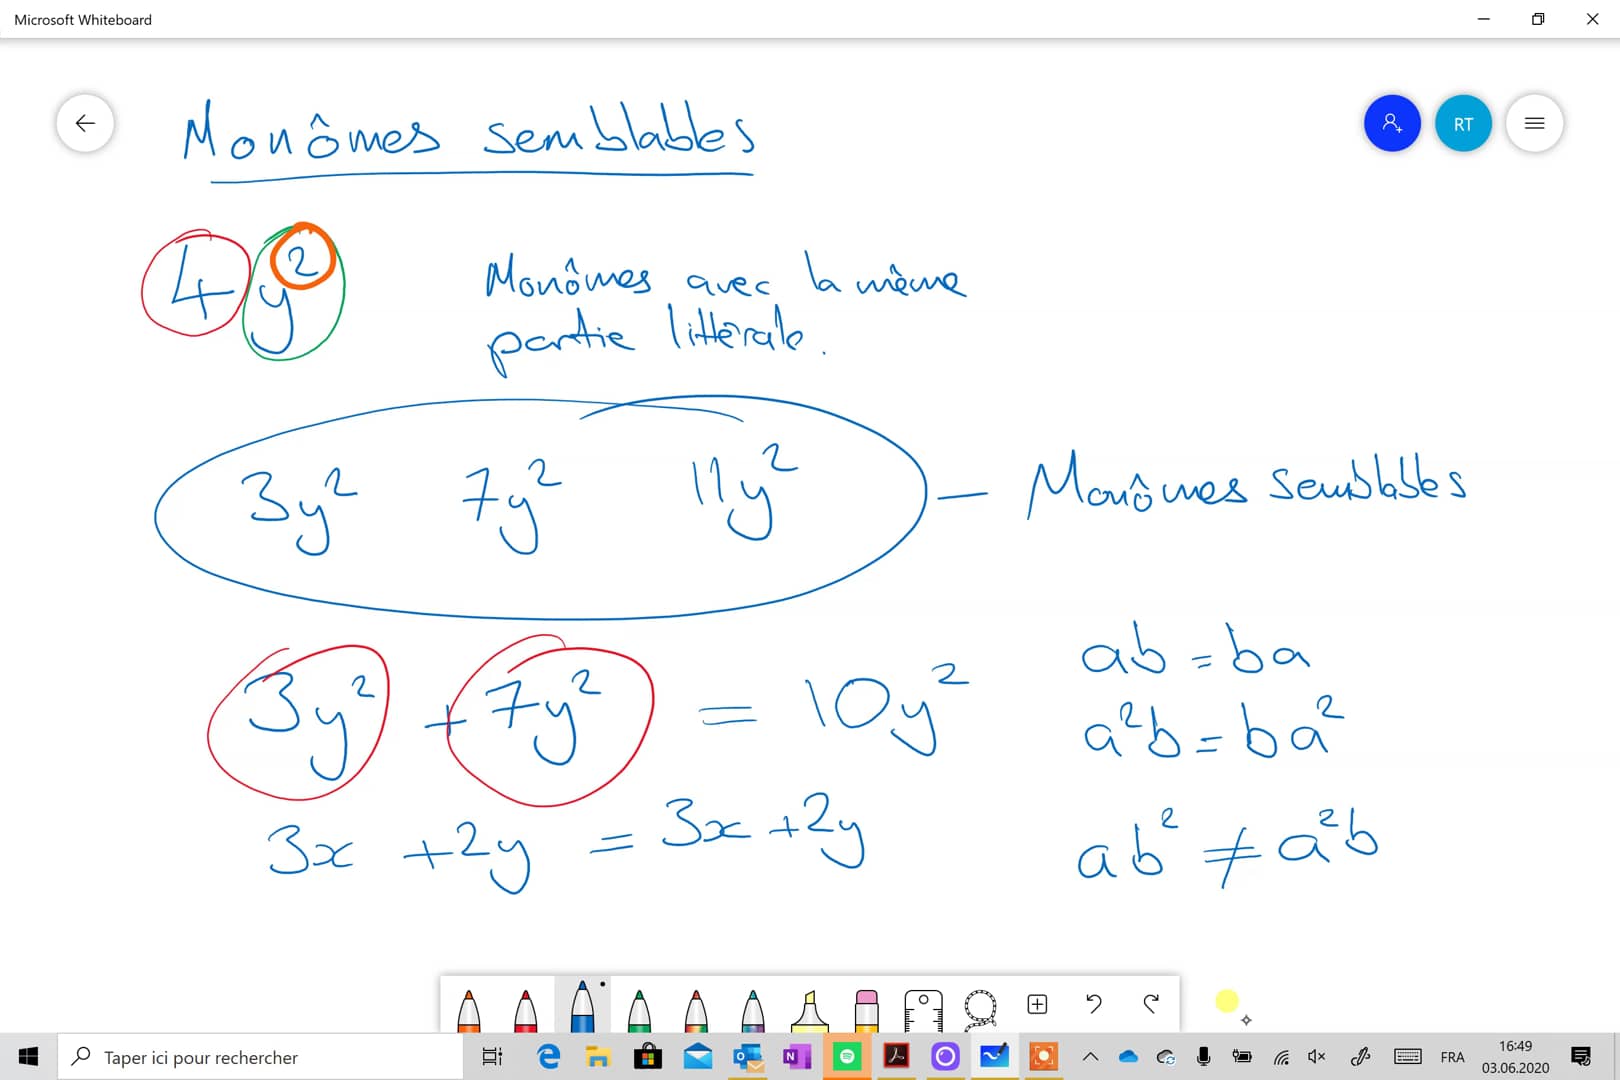 Microsoft Whiteboard
RT
Monômes semblables
4y²
Monômes avec la même
partie littérale.
3y² 7y² 11y² — Monômes semblables
3y² + 7y² = 10y²
3x + 2y = 3x + 2y
ab = ba
a²b = ba²
ab² ≠ a²b
Taper ici pour rechercher
FRA
16:49
03.06.2020